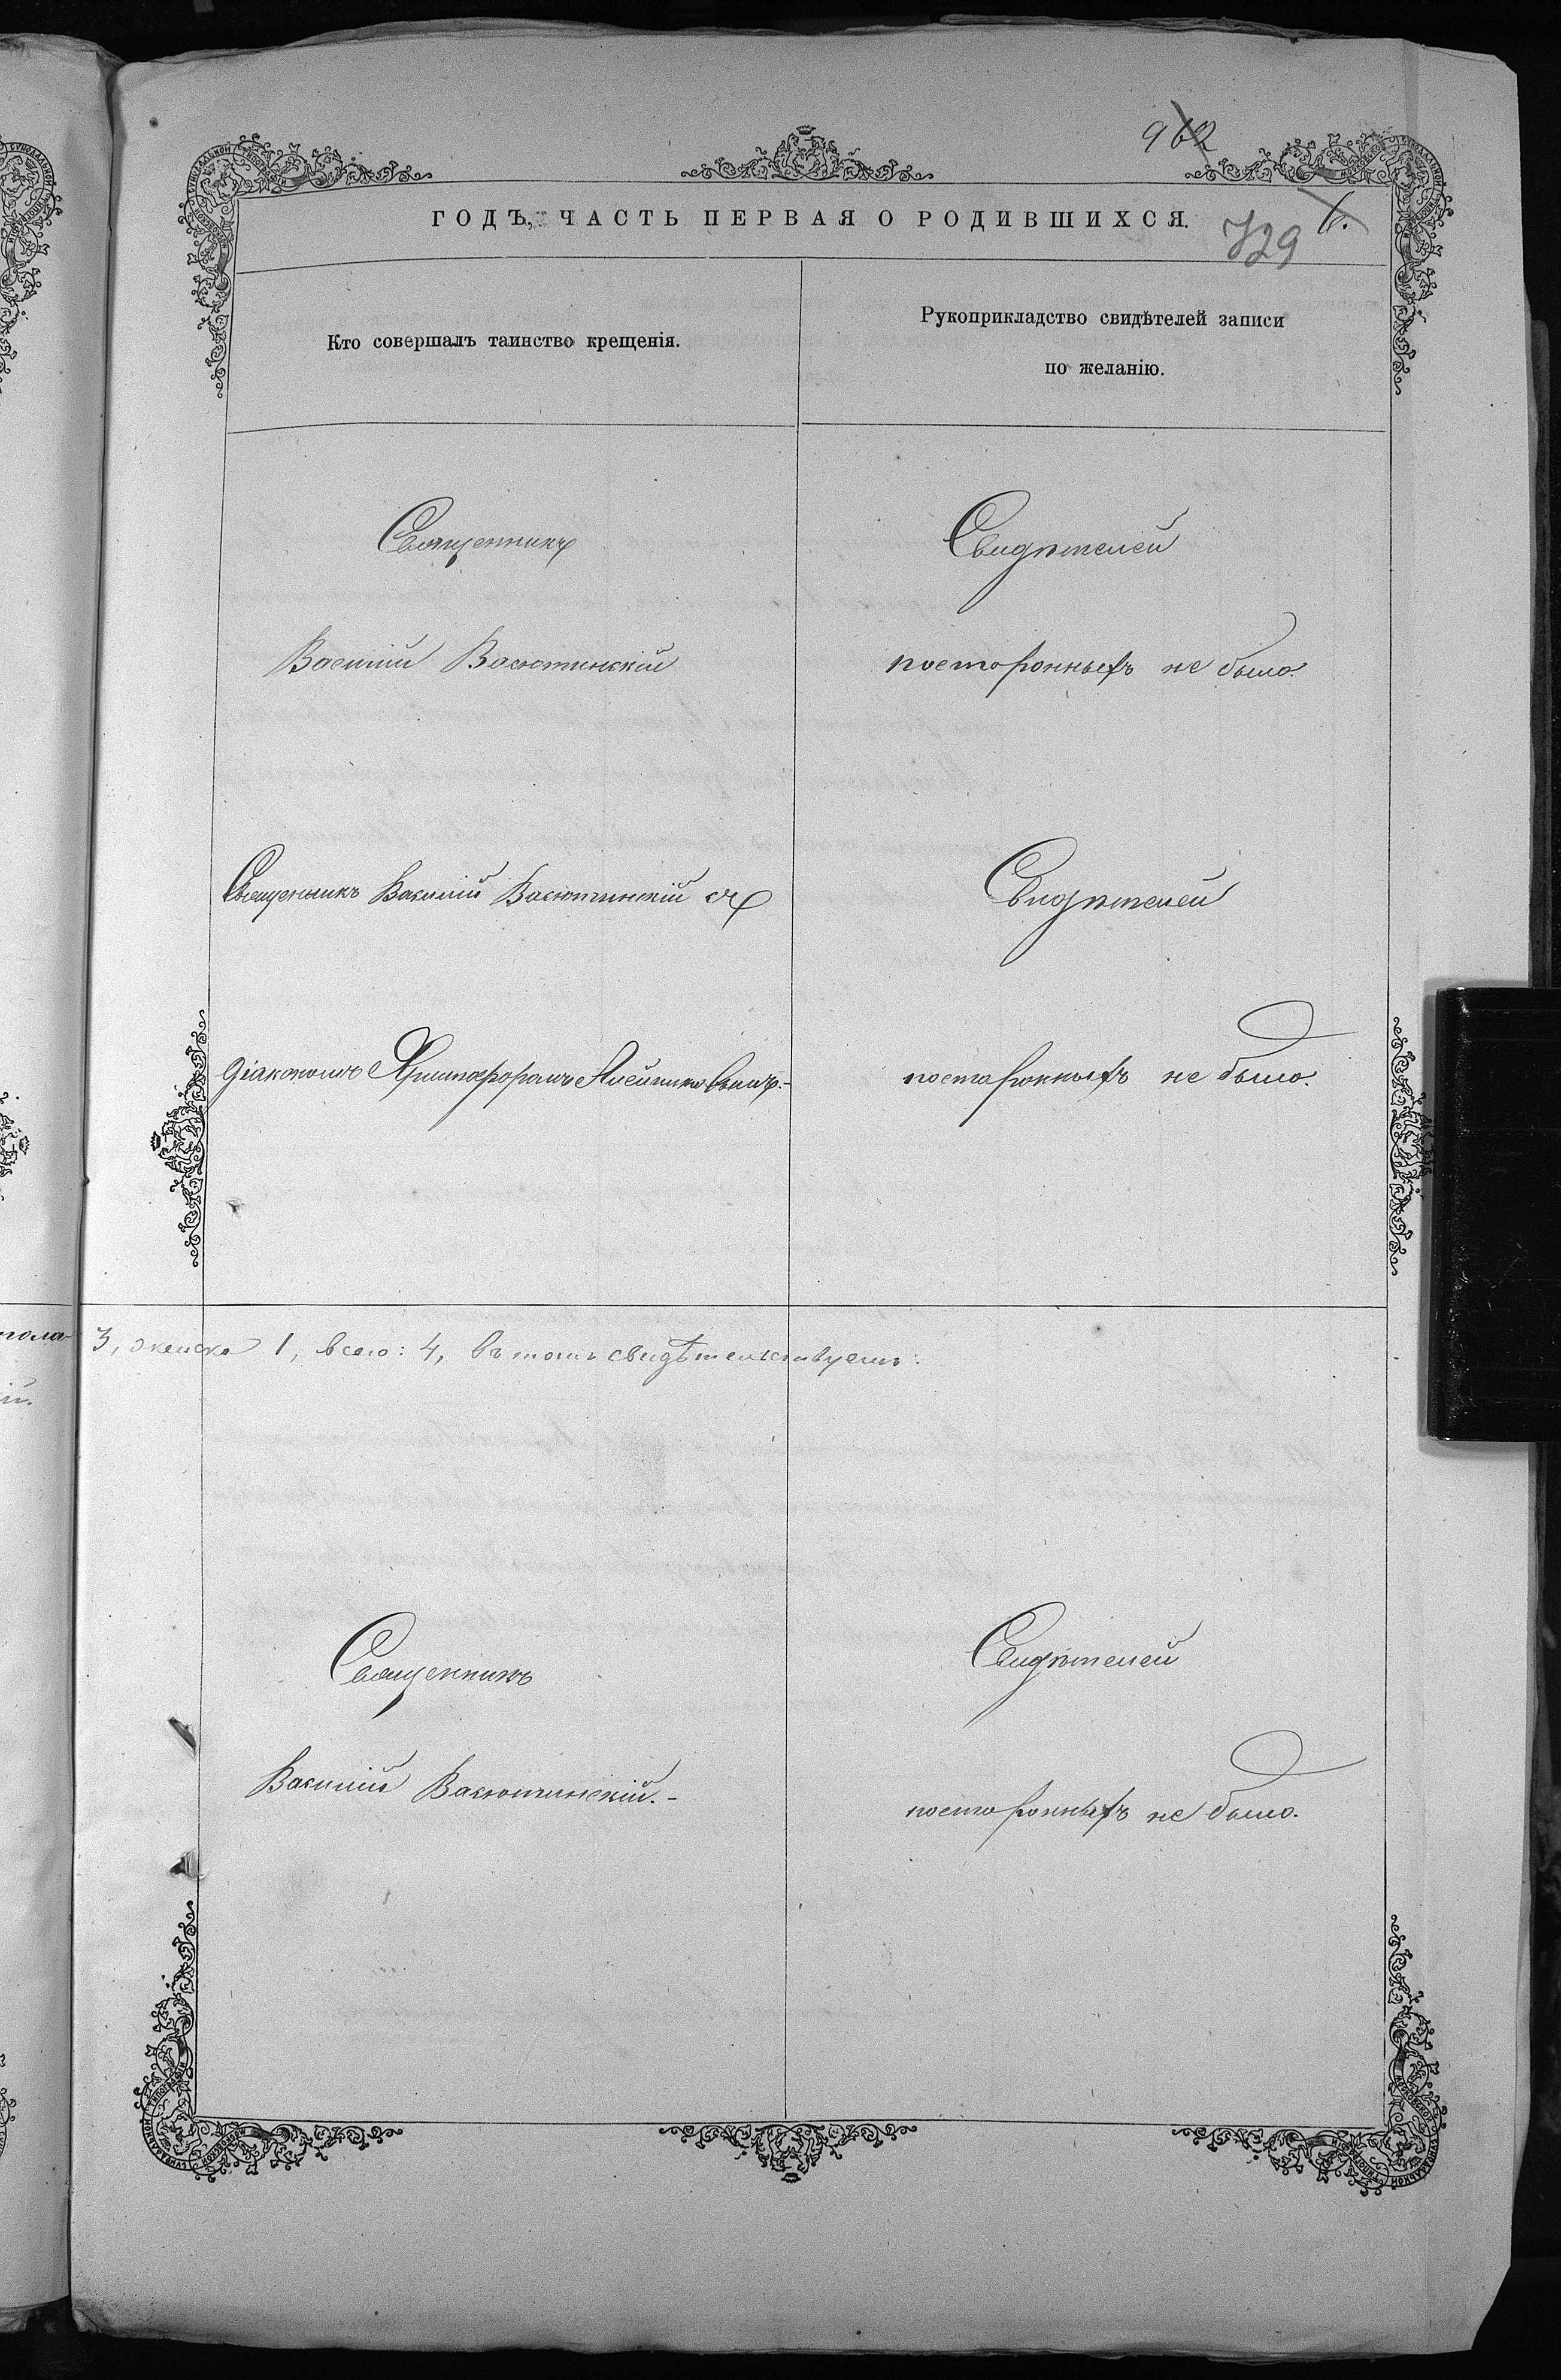 962
ГОДЪ, ЧАСТЬ ПЕРВАЯ О РОДИВШИХСЯ.
6.
729
Кто совершалъ таинство крещенія.
Рукоприкладство свидѣтелей записи
по желанію.
Священникъ
Василій Васютинскій
Свидѣтелей
постороннихъ не было.
Священникъ Василій Васютинскій съ
діакономъ Христофоромъ
Свидѣтелей
постороннихъ не было.
3, женска 1, всего: 4, въ томъ свидѣтельствуемъ:
Священникъ
Василій Васютинскій.-
Свидѣтелей
постороннихъ не было.